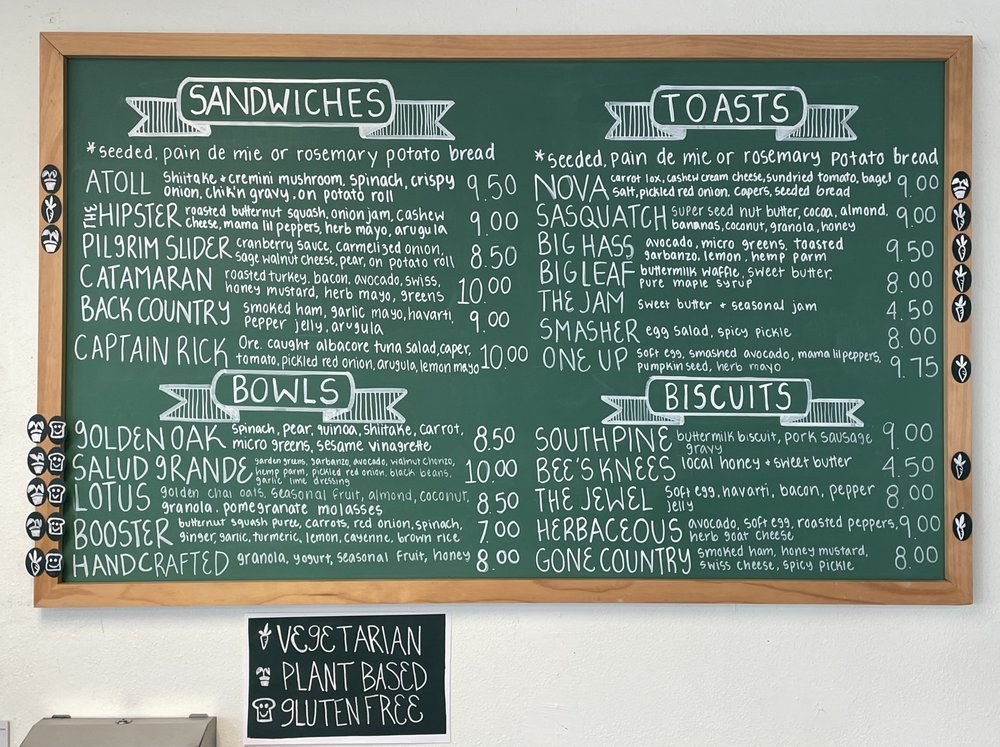 SANDWICHES
*seeded, pain de mie or rosemary potato bread
ATOLL shiitake + cremini mushroom, spinach, crispy
onion, chik'n gravy, on potato roll 9.50
THE HIPSTER roasted butternut squash, onion jam, cashew
cheese, mama lil peppers, herb mayo, arugula 9.00
PILGRIM SLIDER cranberry sauce, carmelized onion,
sage walnut cheese, pear, on potato roll 8.50
CATAMARAN roasted turkey, bacon, avocado, swiss,
honey mustard, herb mayo, greens 10.00
BACK COUNTRY smoked ham, garlic mayo, havarti,
pepper jelly, arugula 9.00
CAPTAIN RICK Ore. caught albacore tuna salad, caper,
tomato, pickled red onion, arugula, lemon mayo 10.00
BOWLS
GOLDEN OAK spinach, pear, quinoa, shiitake, carrot,
micro greens, sesame vinagrette 8.50
SALUD GRANDE garden greens, garbanzo, avocado, walnut chorizo,
hemp parm, pickled red onion, black beans,
garlic lime dressing 10.00
LOTUS golden chai oats, seasonal fruit, almond, coconut,
granola, pomegranate molasses 8.50
BOOSTER butternut squash puree, carrots, red onion, spinach,
ginger, garlic, turmeric, lemon, cayenne, brown rice 7.00
HANDCRAFTED granola, yogurt, seasonal fruit, honey 8.00
TOASTS
*seeded, pain de mie or rosemary potato bread
NOVA carrot lox, cashew cream cheese, sundried tomato, bagel
salt, pickled red onion, capers, seeded bread 9.00
SASQUATCH super seed nut butter, cocoa, almond,
bananas, coconut, granola, honey 9.00
BIG HASS avocado, micro greens, toasted
garbanzo, lemon, hemp parm 9.50
BIG LEAF buttermilk waffle, sweet butter,
pure maple syrup 8.00
THE JAM sweet butter + seasonal jam 4.50
SMASHER egg salad, spicy pickle 8.00
ONE UP soft egg, smashed avocado, mama lil peppers,
pumpkin seed, herb mayo 9.75
BISCUITS
SOUTHPINE buttermilk biscuit, pork sausage
gravy 9.00
BEE'S KNEES local honey + sweet butter 4.50
THE JEWEL soft egg, havarti, bacon, pepper
jelly 8.00
HERBACEOUS avocado, soft egg, roasted peppers,
herb goat cheese 9.00
GONE COUNTRY smoked ham, honey mustard,
swiss cheese, spicy pickle 8.00
VEGETARIAN
PLANT BASED
GLUTEN FREE